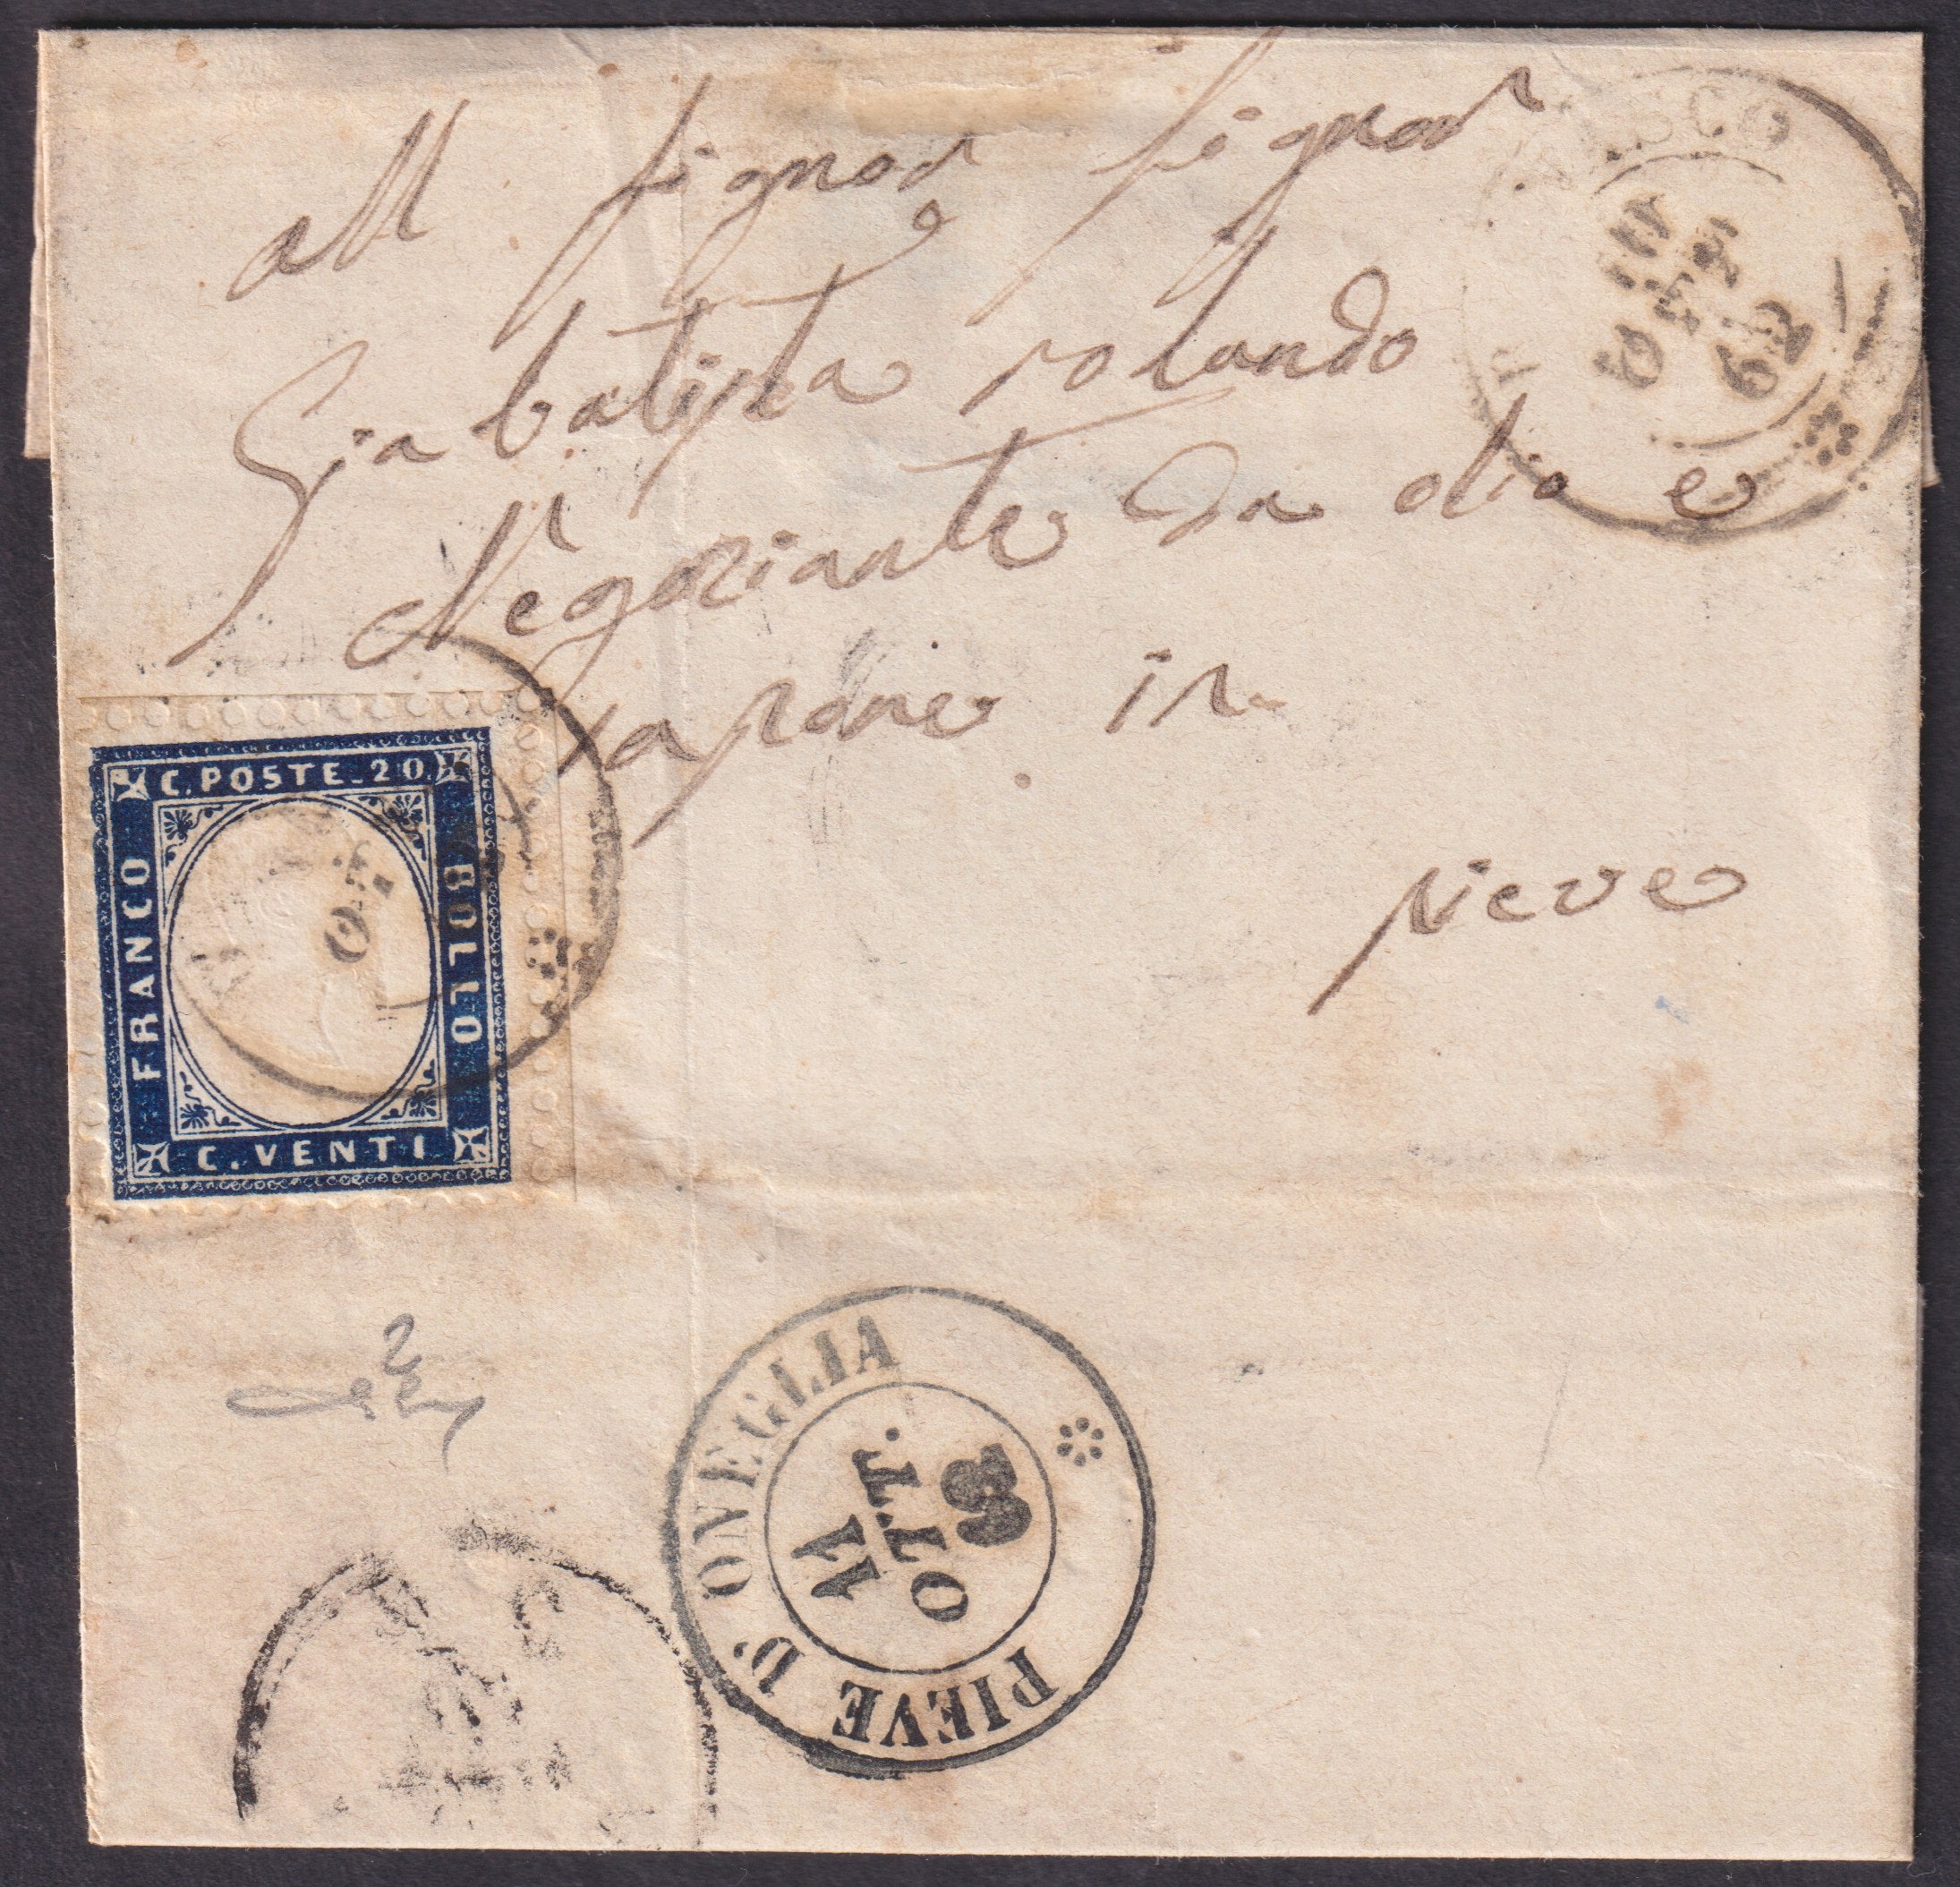 All Signor Signor
Gia batista rolando
Negoziante da olio e
sapone in
pieve
C. POSTE. 20.
FRANCO
BOLLO
C. VENTI.
PIEVE D' ONEGLIA
11
OTT.
62
10
OTT
62